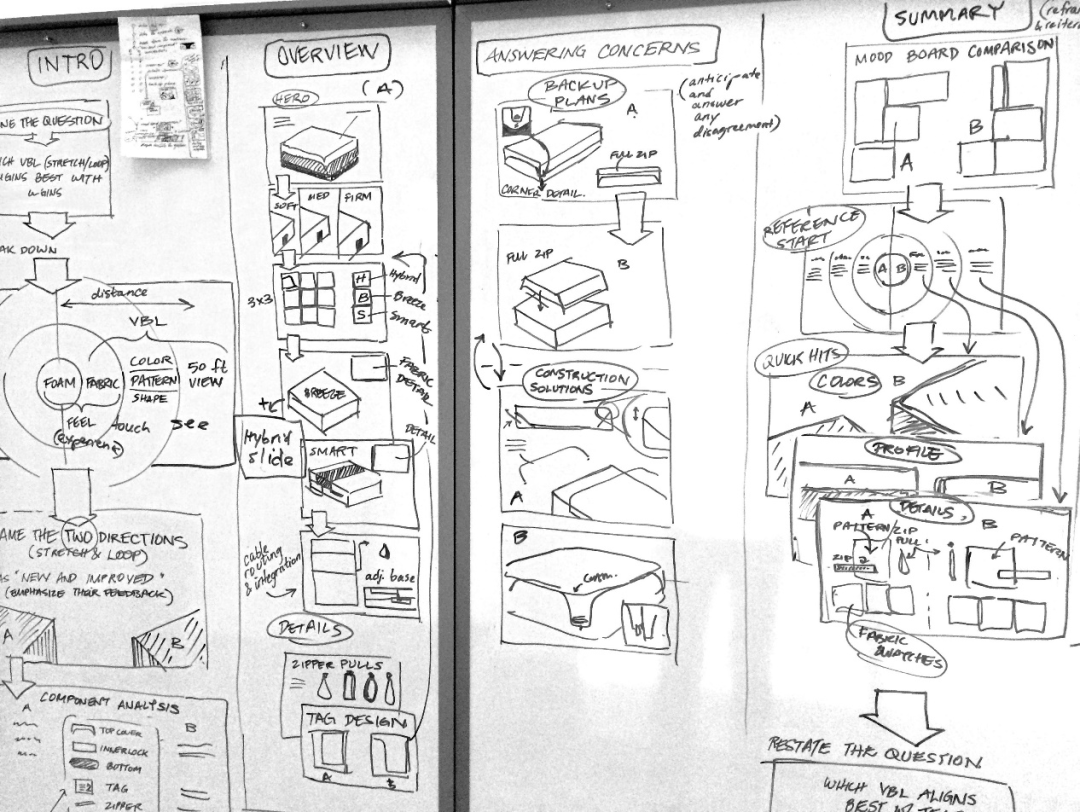 INTRO
THE QUESTION
VBL (STRETCH/LOOP)
BEST WITH
DOWN
distance
VBL
FOAM
FABRIC
COLOR
PATTERN
SHAPE
50 ft
VIEW
FEEL
touch
see
THE TWO DIRECTIONS
(STRETCH & LOOP)
"NEW AND IMPROVED"
(EMPHASIZE THEIR FEEDBACK)
A
B
COMPONENT ANALYSIS
A
B
TOP COVER
INNERLOCK
BOTTOM
TAG
ZIPPER
OVERVIEW
(A)
HERO
SOFT
MED
FIRM
3x3
H
Hybrid
B
Breeze
S
Smart
BREEZE
FABRIC
DETAIL
Hybrid
slide
SMART
DETAIL
cable
routing
& integration
adj. base
DETAILS
ZIPPER PULLS
TAG DESIGN
A
B
ANSWERING CONCERNS
BACKUP
PLANS
A
(anticipate
and
answer
any
disagreement)
FULL ZIP
CORNER DETAIL.
FULL ZIP
B
CONSTRUCTION
SOLUTIONS
A
B
SUMMARY
MOOD BOARD COMPARISON
A
B
REFERENCE
START
A
B
QUICK HITS
COLORS
A
B
PROFILE
A
B
DETAILS
A
PATTERN
ZIP
PULL
B
PATTERN
ZIP
FABRIC
SWATCHES
RESTATE THE QUESTION
WHICH VBL ALIGNS
BEST W/